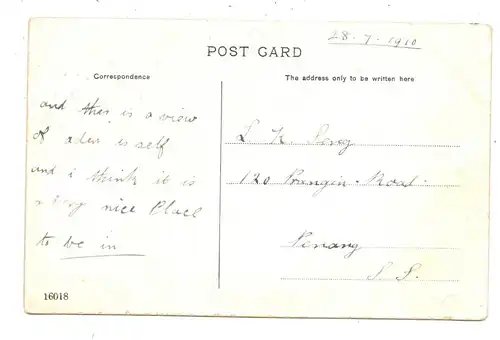 28 - 7 - 1910
POST CARD
Correspondence
The address only to be written here
and this is a view
of aden it self
and i think it is
a very nice Place
to be in
L K
120 Prangin Road
Pinang
S. S.
16018